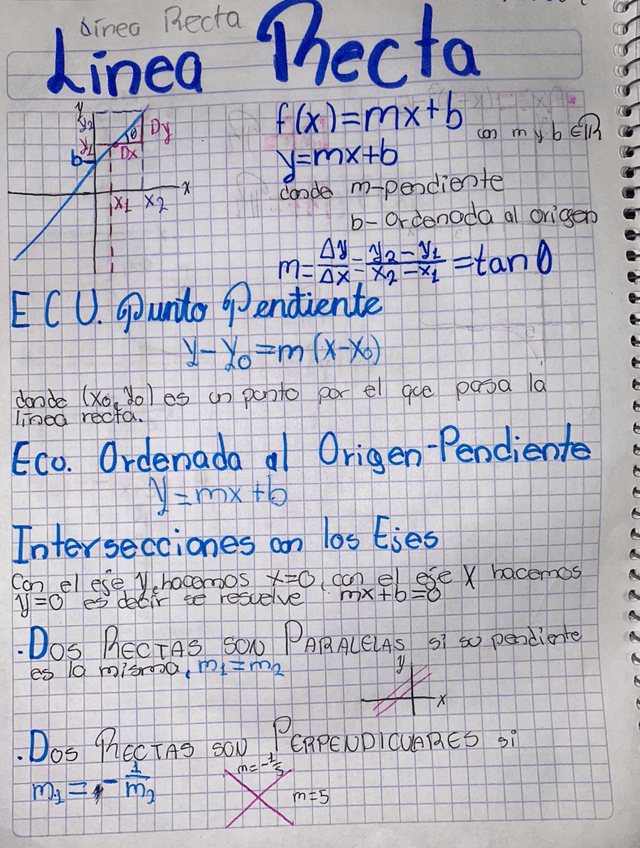 Línea Recta
Línea Recta
y
y2
y1
b
θ
Dy
Dx
x1 x2
x
f(x)=mx+b con m y b ∈ ℝ
y=mx+b
donde m-pendiente
b-Ordenada al origen
m=Δy/Δx=y2-y1/x2-x1=tanθ
ECU. Punto Pendiente
y-y0=m(x-x0)
donde (x0,y0) es un punto por el que pasa la
línea recta.
Ecu. Ordenada al Origen-Pendiente
y=mx+b
Intersecciones con los Ejes
Con el eje y, hacemos x=0, con el eje X hacemos
y=0 es decir se resuelve mx+b=0
.DOS RECTAS SON PARALELAS si su pendiente
es la misma, m1=m2
y
x
.DOS RECTAS SON PERPENDICUARES si
m1=-1/m2
m=-1/5
m=5